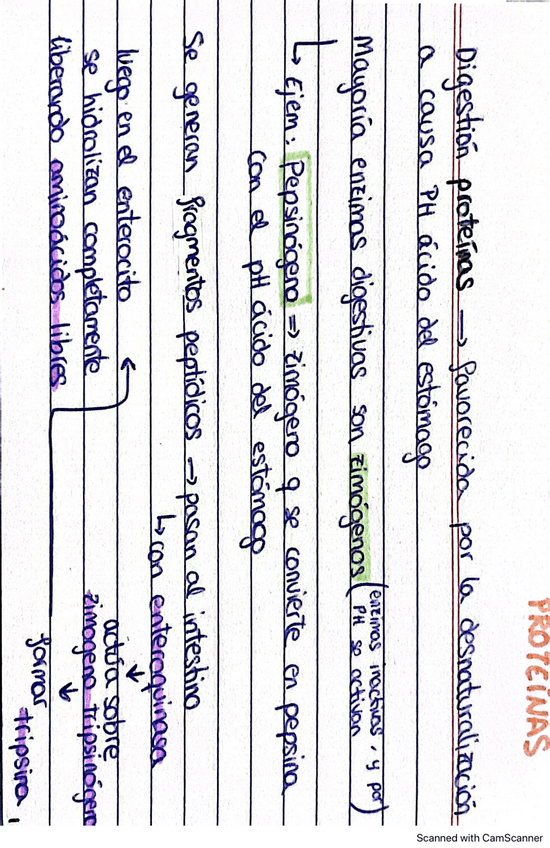 PROTEÍNAS
Digestión proteínas → favorecida por la desnaturalización
a causa PH ácido del estómago
Mayoría enzimas digestivas son zimógenos (enzimas inactivas, y por
PH se activan)
↳ Ejem: Pepsinógeno ⇒ zimógeno q se convierte en pepsina
con el pH ácido del estómago
Se generan fragmentos peptídicos → pasan al intestino
↳ con enteroquinasa
↓
actúa sobre
zimogeno tripsinógeno
↓
formar
tripsina
luego en el enterocito ←
se hidrolizan completamente
liberando aminoácidos libres
Scanned with CamScanner